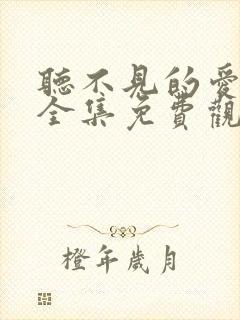 聽不見的愛
全集免費觀
橙年歲月